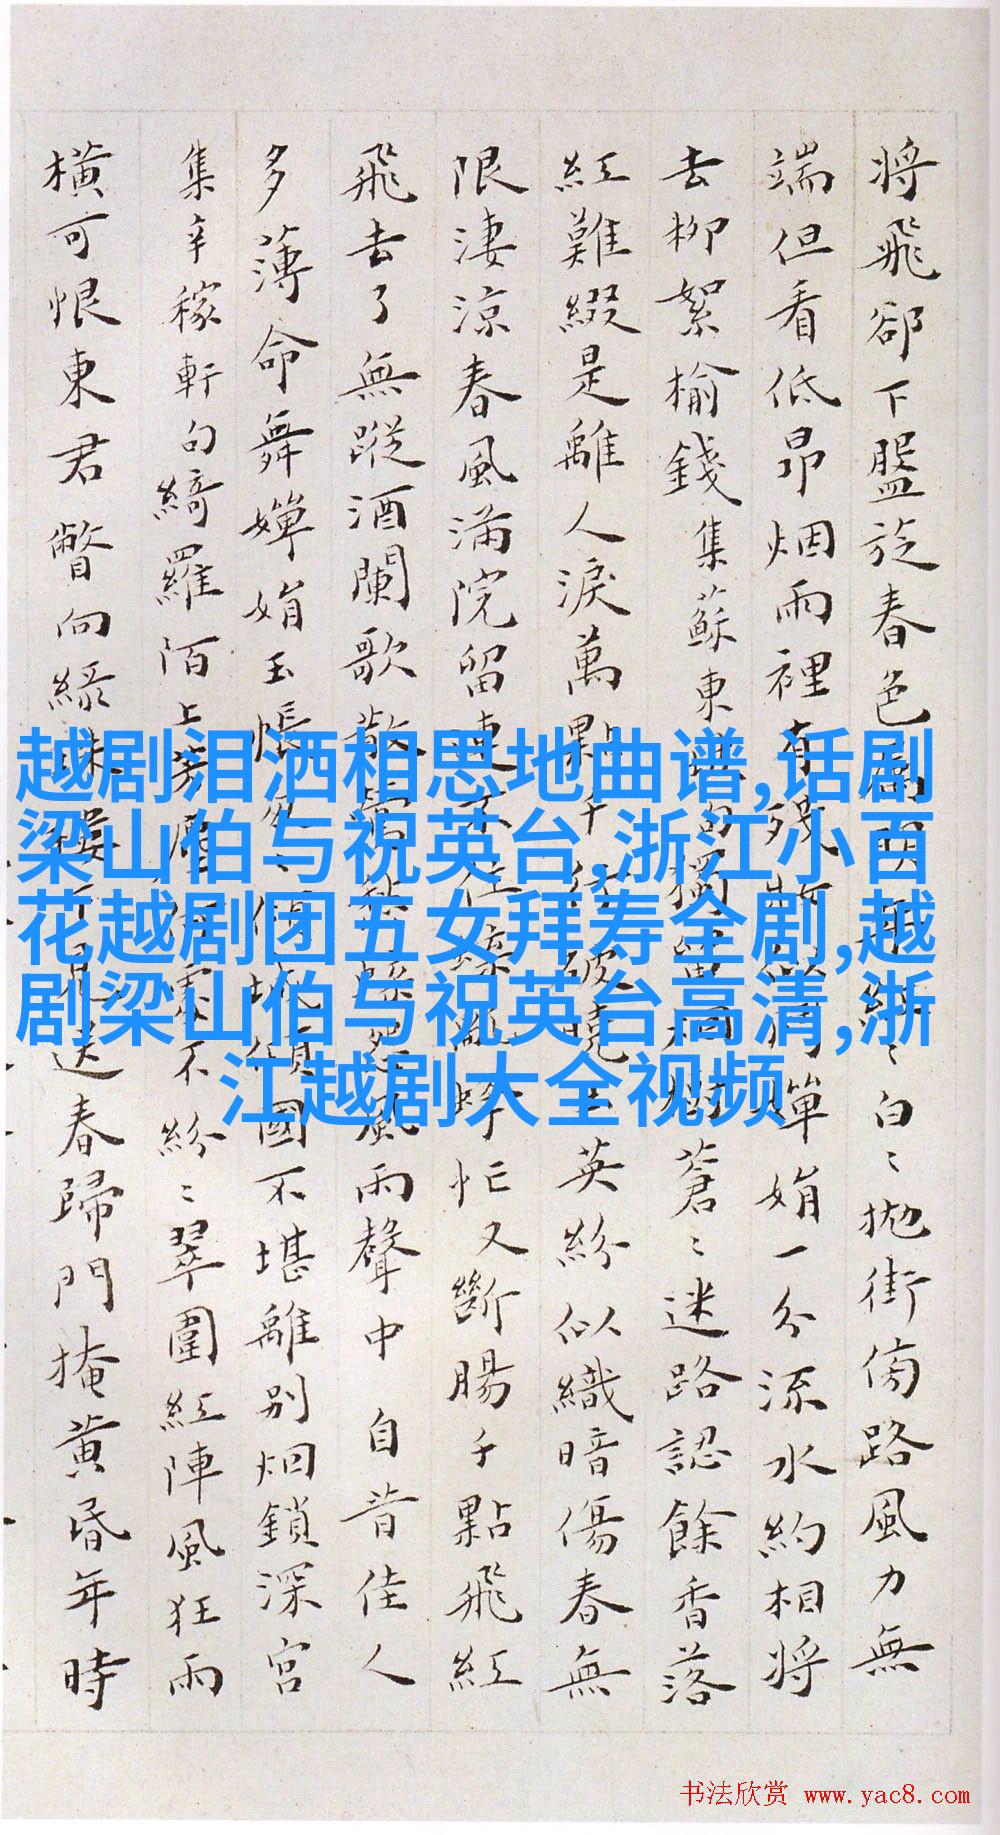 將飛卻下盤旋春色紅〻白〻拋街傍路風力無
端但看低昂烟雨裡有嬋娟一分流水約相將
去柳絮榆錢集蘇東蒼〻迷路認餘香落
紅難綴是離人淚萬點千英紛似織暗傷春無
限淒涼春風滿院留連不住忙又斷腸千點飛紅
飛去了無蹤酒闌歌散風雨聲中 自昔佳人
多薄命舞嬋娟玉帳傾城傾國不堪離別烟鎖深宮
集辛稼軒句綺羅陌上芳塵不紛〻翠圍紅陣風狂雨
橫可恨東君瞥向綠珠樓下見送春歸門掩黃昏年時
越剧泪洒相思地曲谱,话剧
梁山伯与祝英台,浙江小百
花越剧团五女拜寿全剧,越
剧梁山伯与祝英台高清,浙
江越剧大全视频
书法欣赏 www.yac8.com